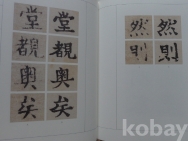 堂 堂
覩 覩
奥 奥
矣 矣
然 然
則 則
kobay